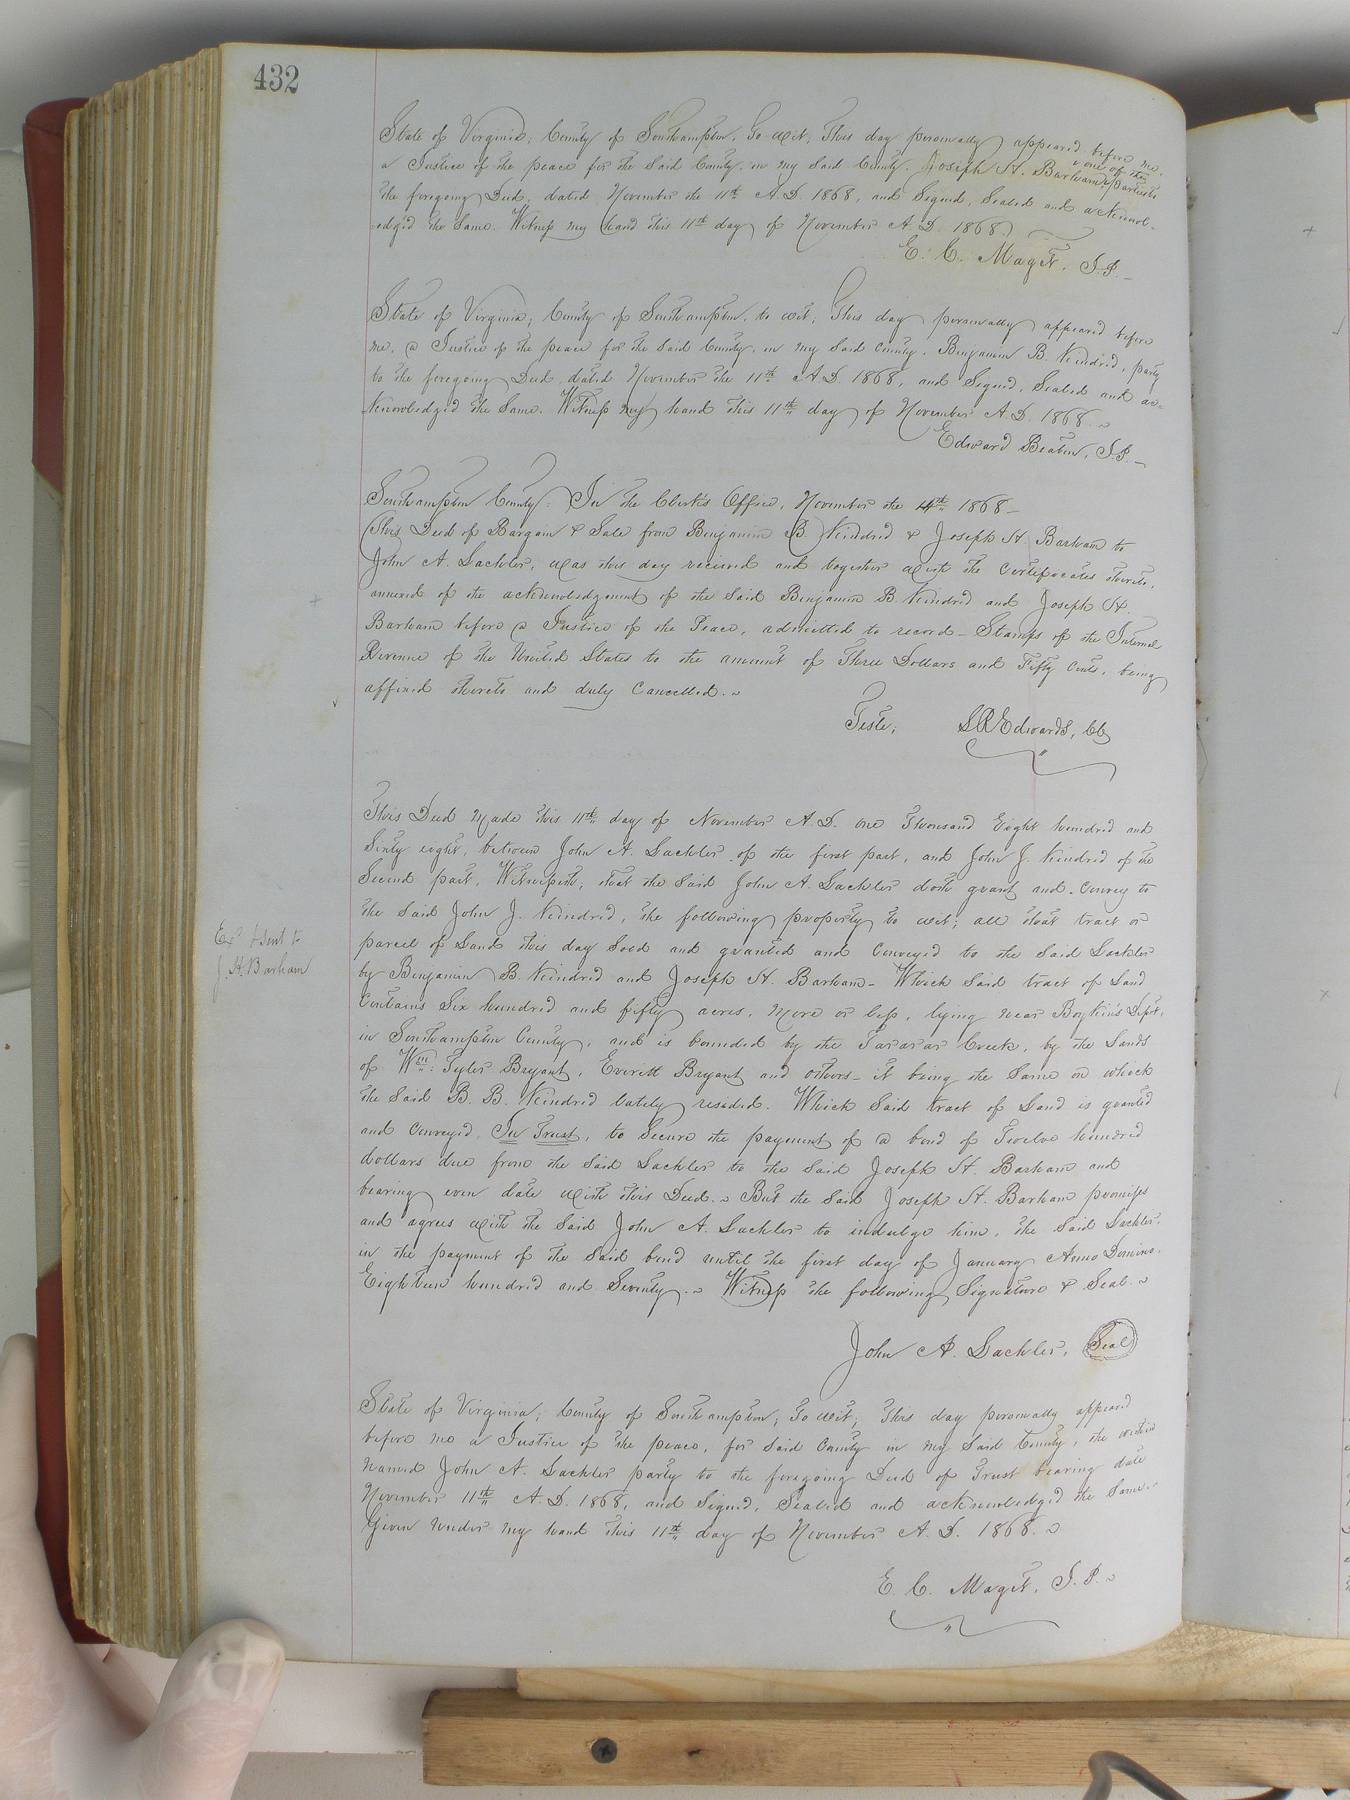 432
State of Virginia, County of Southampton, To wit, This day personally appeared before me,
a Justice of the peace for the said County, in my said County, Joseph H. Barham, one of the parties to
the foregoing Deed, dated November the 11th A.D. 1868, and Signed, Sealed and acknowl-
edged the Same. Witness my hand this 11th day of November A.D. 1868.
E. C. Magét, J.P.
State of Virginia, County of Southampton, to wit, This day personally appeared before
me, a Justice of the peace for the Said County, in my Said County, Benjamin B. Kindred, party
to the foregoing Deed, dated November the 11th A.D. 1868, and Signed, Sealed and ac-
knowledged the Same. Witness my hand this 11th day of November A.D. 1868.
Edward Beaton, J.P.
Southampton County: In the Clerk's Office, November the 14th 1868
This Deed of Bargain & Sale from Benjamin B. Kindred & Joseph H. Barham to
John A. Lachler, was this day recieved and together with the Certificates thereto,
annexed of the acknowledgment of the Said Benjamin B. Kindred and Joseph H.
Barham before a Justice of the Peace, admitted to record - Stamps of the Internal
Revenue of the United States to the amount of Three Dollars and Fifty Cents, being
affixed thereto and duly Cancelled.
Teste, L R Edwards, CC
This Deed Made this 11th day of November A.D. one Thousand Eight hundred and
Sixty eight, between John A. Lachler of the first part, and John J. Kindred of the
Second part, Witnesseth, that the Said John A. Lachler doth grant and Convey to
the Said John J. Kindred, the following property to wit; all that tract or
parcel of Land this day Sold and granted and Conveyed to the Said Lachler
by Benjamin B. Kindred and Joseph H. Barham - Which Said tract of Land
Contains Six hundred and fifty acres, More or less, lying near Boykin's Dept.
in Southampton County, and is bounded by the Tararar Creek, by the Lands
of Wm. Tyler Bryant, Everett Bryant and others - it being the Same on which
the Said B. B. Kindred lately resided. Which Said tract of Land is granted
Ex & Sent to
J. H. Barham
and Conveyed, In Trust, to Secure the payment of a bond of Twelve hundred
dollars due from the Said Lachler to the Said Joseph H. Barham and
bearing even date with this Deed. But the Said Joseph H. Barham promises
and agrees with the Said John A. Lachler to indulge him, the Said Lachler,
in the payment of the Said bond until the first day of January Anno Domino.
Eighteen hundred and Seventy. Witness the following Signature & Seal.
John A. Lachler, Seal
State of Virginia; County of Southampton; To wit; This day personally appeared
before me a Justice of the peace, for Said County in my Said County, the within
Named John A. Lachler party to the foregoing Deed of Trust bearing date
November 11th A.D. 1868, and Signed, Sealed and acknowledged the Same.
Given under my hand this 11th day of November A.D. 1868.
E. C. Magét, J.P.